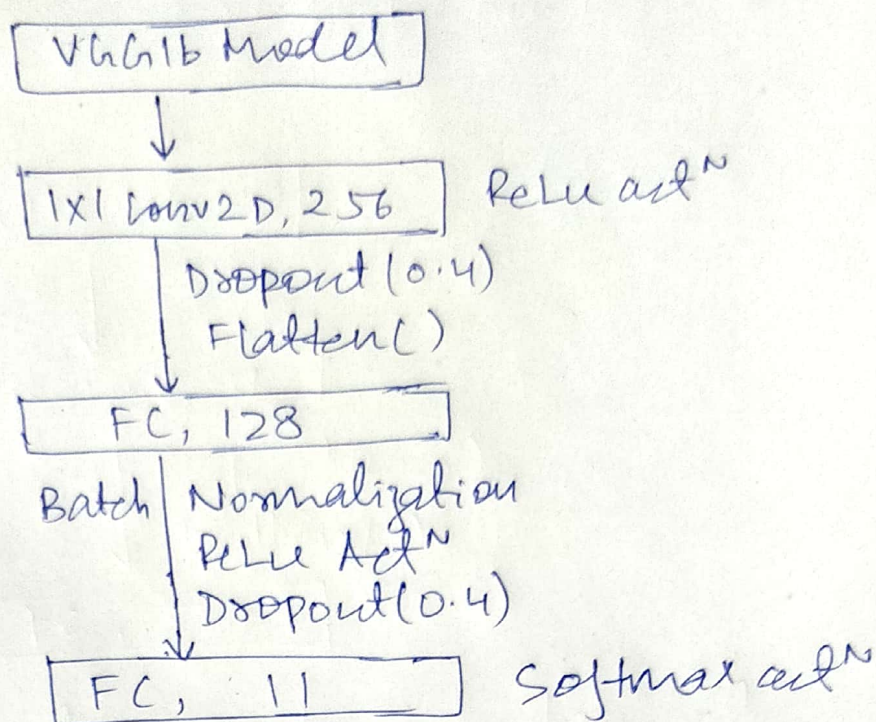 VGG16 Model
1x1 Conv2D, 256 ReLu actᴺ
Dropout (0.4)
Flatten()
FC, 128
Batch Normalization
ReLu Actᴺ
Dropout(0.4)
FC, 11 Softmax actᴺ